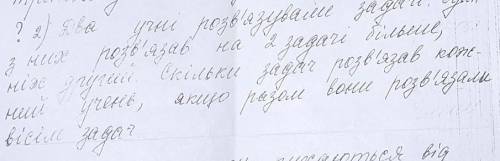 ? 2) Два учні розв'язували задачі. Один
з них розв'язав на 2 задачі більше,
ніж другий. Скільки задач розв'язав кож-
ний учень, якщо разом вони розв'язали
вісім задач
від